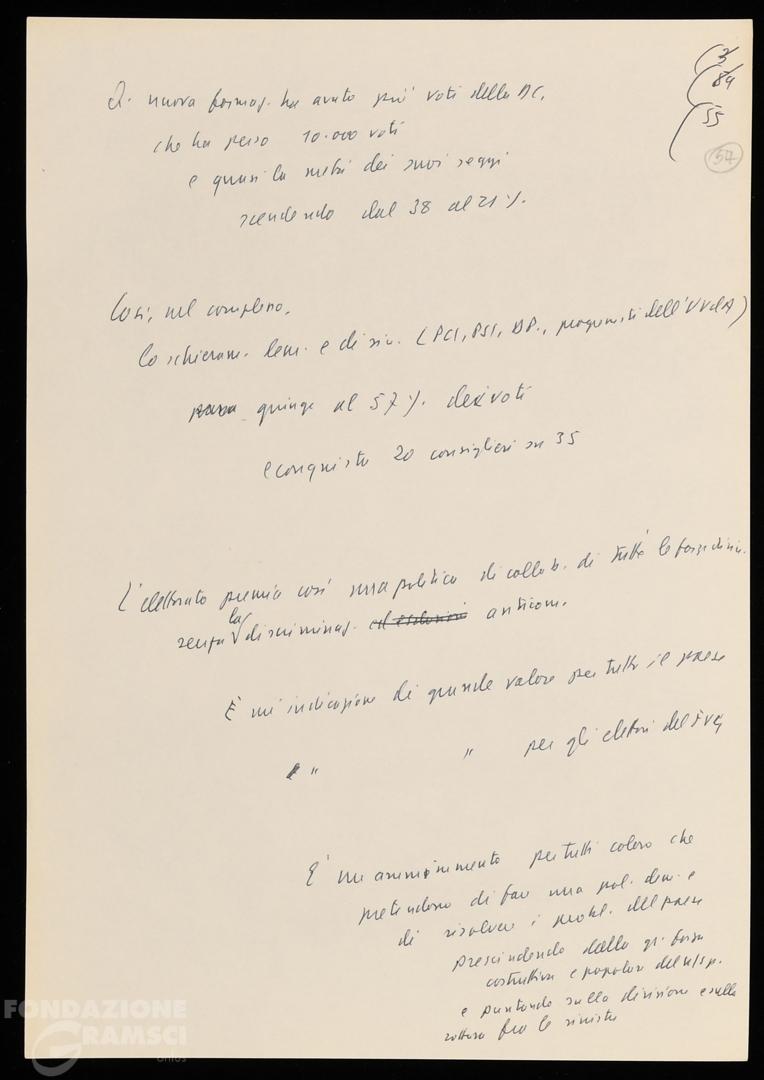 3/
84
55
57
Q. nuova formaz. ha avuto più voti della DC,
che ha perso 10.000 voti
e quasi la metà dei suoi seggi
scendendo dal 38 al 21%.
Così, nel complesso,
lo schieram. dem. e di sin. (PCI, PSI, DP., progressisti dell'UVdA)
passa giunge al 57%. dei voti
e conquista 20 consiglieri su 35
L'elettorato premia così una politica di collab. di tutte le forze di sin.
senza la discriminaz. ed esclusioni anticom.
È un'indicazione di grande valore per tutto il paese
È " " per gli elettori del FVG
È un ammonimento per tutti coloro che
pretendono di fare una pol. dem. e
di risolvere i probl. del paese
prescindendo dalla gr. forza
costruttiva e popolare del ns/p.
e puntando sulla divisione e sulla
rottura fra le sinistre
FONDAZIONE
GRAMSCI
onlus